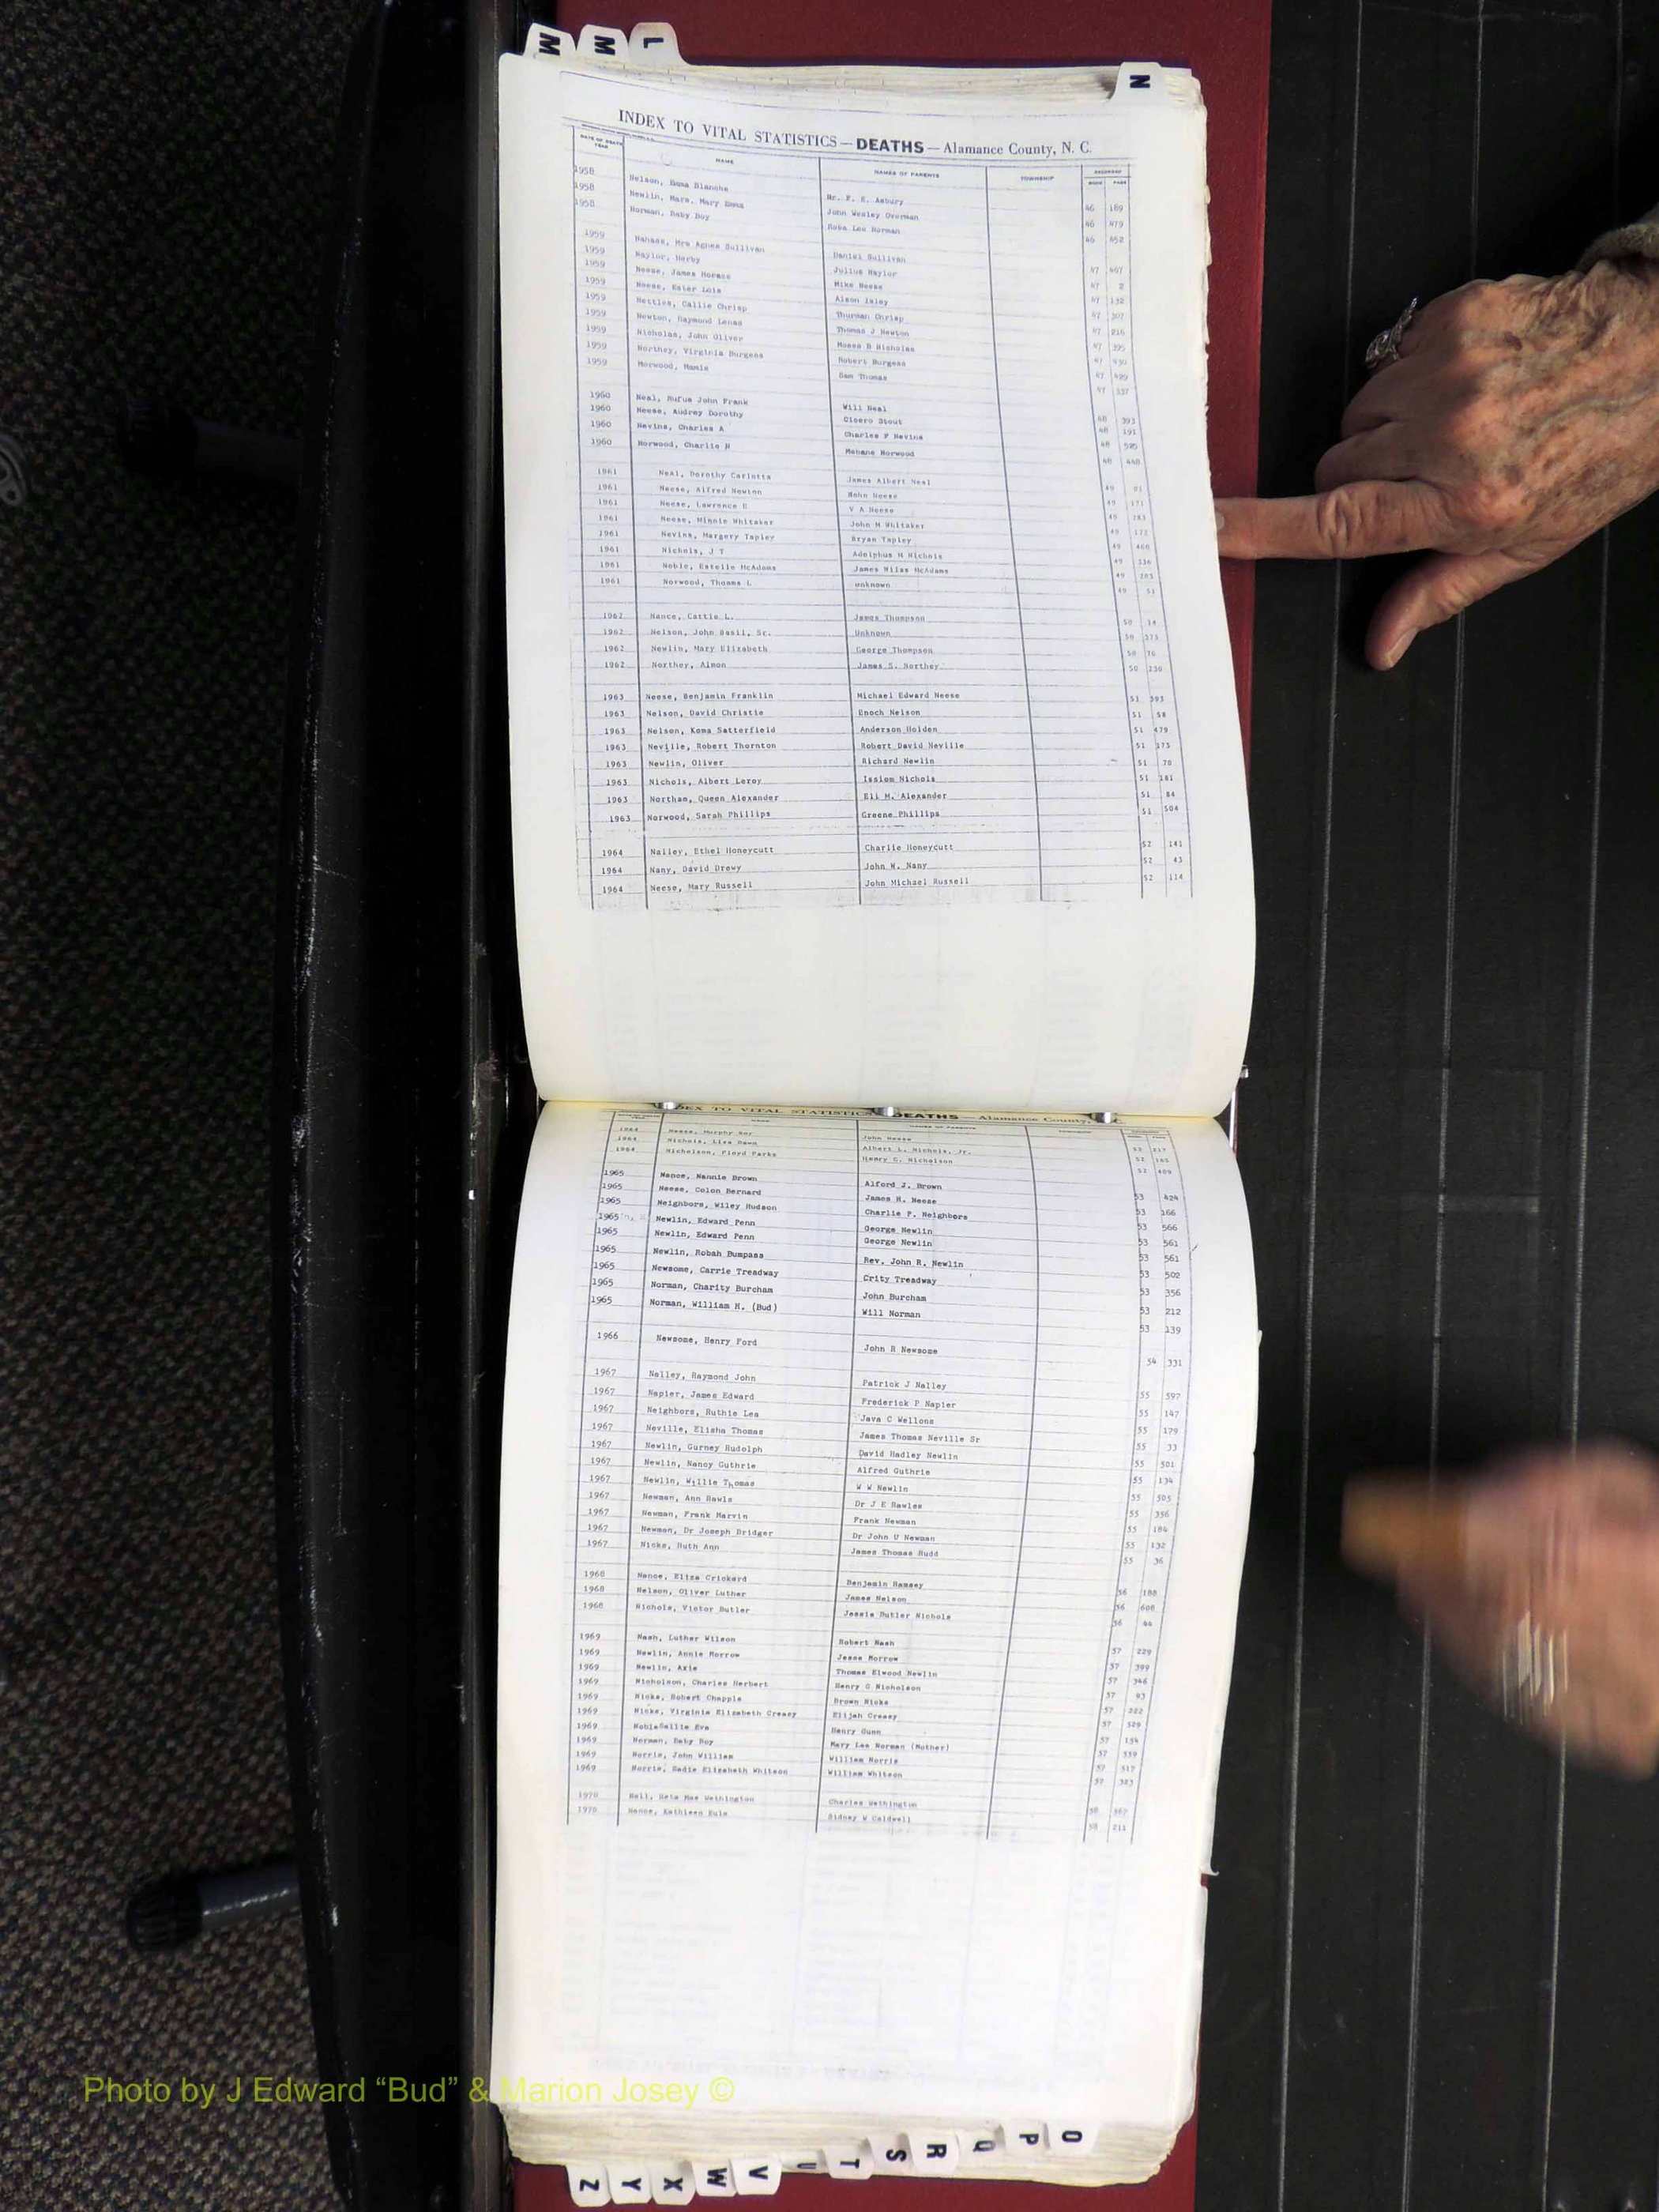 M M L
N
INDEX TO VITAL STATISTICS — DEATHS — Alamance County, N. C.
DATE OF DEATH YEAR NAME NAMES OF PARENTS TOWNSHIP RECORDED BOOK PAGE
1958 Nelson, Emma Blanche Mr. F. E. Asbury 46 189
1958 Newlin, Mars. Mary Emma John Wesley Overman 46 479
1958 Norman, Baby Boy Roba Lee Norman 46 452
1959 Nahass, Mrs Agnes Sullivan Daniel Sullivan 47 467
1959 Naylor, Herby Julius Naylor 47 2
1959 Neese, James Horace Mike Neese 47 132
1959 Neese, Ester Lois Alson Isley 47 307
1959 Nettles, Callie Chrisp Thurman Chrisp 47 216
1959 Newton, Raymond Lenas Thomas J Newton 47 395
1959 Nicholas, John Oliver Moses B Nicholas 47 430
1959 Northey, Virginia Burgess Robert Burgess 47 499
1959 Morwood, Mamie Sam Thomas 47 337
1960 Neal, Rufus John Frank Will Neal 48 393
1960 Neese, Audrey Dorothy Cicero Stout 48 191
1960 Nevins, Charles A Charles P Nevins 48
1960 Norwood, Charlie H Mebane Norwood 48 448
1961 Neal, Dorothy Carlotta James Albert Neal 49 91
1961 Neese, Alfred Newton John Neese 49 171
1961 Neese, Lawrence E V A Neese 49 283
1961 Neese, Minnie Whitaker John M Whitaker 49 172
1961 Nevins, Margery Tapley Bryan Tapley 49 460
1961 Nichols, J T Adolphus M Nichols 49 336
1961 Noble, Estelle McAdams James Wilas McAdams 49 283
1961 Norwood, Thoams L unknown 49 51
1962 Nance, Cattie L. James Thompson 50 14
1962 Nelson, John Basil, Sr. Unknown 50 373
1962 Newlin, Mary Elizabeth George Thompson 50 76
1962 Northey, Almon James S. Northey 50 230
1963 Neese, Benjamin Franklin Michael Edward Neese 51 393
1963 Nelson, David Christie Enoch Nelson 51 58
1963 Nelson, Koma Satterfield Anderson Holden 51 479
1963 Neville, Robert Thornton Robert David Neville 51 275
1963 Newlin, Oliver Richard Newlin 51 70
1963 Nichols, Albert Leroy Ission Nichols 51 381
1963 Northam, Queen Alexander Eli M. Alexander 51 84
1963 Norwood, Sarah Phillips Greene Phillips 51 504
1964 Nalley, Ethel Honeycutt Charlie Honeycutt 52 141
1964 Nany, David Drewy John W. Nany 52 43
1964 Neese, Mary Russell John Michael Russell 52 114
INDEX TO VITAL STATISTICS DEATHS — Alamance County, C.
1964 Neese, Murphy Ray John Neese 52 217
1964 Nichols, Lisa Dawn Albert L. Nichols, Jr. 52 165
1964 Nicholson, Floyd Parks Henry C. Nicholson 52 409
1965 Nance, Nannie Brown Alford J. Brown 53 424
1965 Neese, Colon Bernard James H. Neese 53 166
1965 Neighbors, Wiley Hudson Charlie P. Neighbors 53 566
1965 Newlin, Edward Penn George Newlin 53 561
1965 Newlin, Edward Penn George Newlin 53 561
1965 Newlin, Robah Bumpass Rev. John R. Newlin 53 502
1965 Newsome, Carrie Treadway Crity Treadway 53 356
1965 Norman, Charity Burcham John Burcham 53 212
1965 Norman, William H. (Bud) Will Norman 53 139
1966 Newsome, Henry Ford John R Newsome 54 331
1967 Nalley, Raymond John Patrick J Nalley 55 597
1967 Napier, James Edward Frederick P Napier 55 147
1967 Neighbors, Ruthie Lea Java C Wellons 55 179
1967 Neville, Elisha Thomas James Thomas Neville Sr 55 33
1967 Newlin, Gurney Rudolph David Hadley Newlin 55 501
1967 Newlin, Nancy Guthrie Alfred Guthrie 55 134
1967 Newlin, Willie Thomas W W Newlin 55 505
1967 Newman, Ann Rawls Dr J E Rawles 55 356
1967 Newman, Frank Marvin Frank Newman 55 184
1967 Newman, Dr Joseph Bridger Dr John U Newman 55 132
1967 Nicks, Ruth Ann James Thomas Rudd 55 36
1968 Nance, Eliza Crickard Benjamin Ramsey 56 188
1968 Nelson, Oliver Luther James Nelson 56 608
1968 Nichols, Victor Butler Jessie Butler Nichols 56 44
1969 Nash, Luther Wilson Robert Nash 57 229
1969 Newlin, Annie Morrow Jesse Morrow 57 399
1969 Newlin, Axie Thomas Elwood Newlin 57 346
1969 Nicholson, Charles Herbert Henry G Nicholson 57 93
1969 Nicks, Robert Chapple Brown Nicks 57 222
1969 Nicks, Virginia Elizabeth Creasy Elijah Creasy 57 529
1969 NobleSallie Eva Henry Gunn 57 154
1969 Norman, Baby Boy Mary Lee Norman (Mother) 57 359
1969 Norris, John William William Norris 57 517
1969 Norris, Sadie Elizabeth Whitson William Whitson 57 323
1970 Nall, Neta Mae Wethington Charles Wethington 58 367
1970 Nance, Kathleen Eula Sidney W Caldwell 58 211
Photo by J Edward “Bud” & Marion Josey ©
O P Q R S T U V W X Y Z